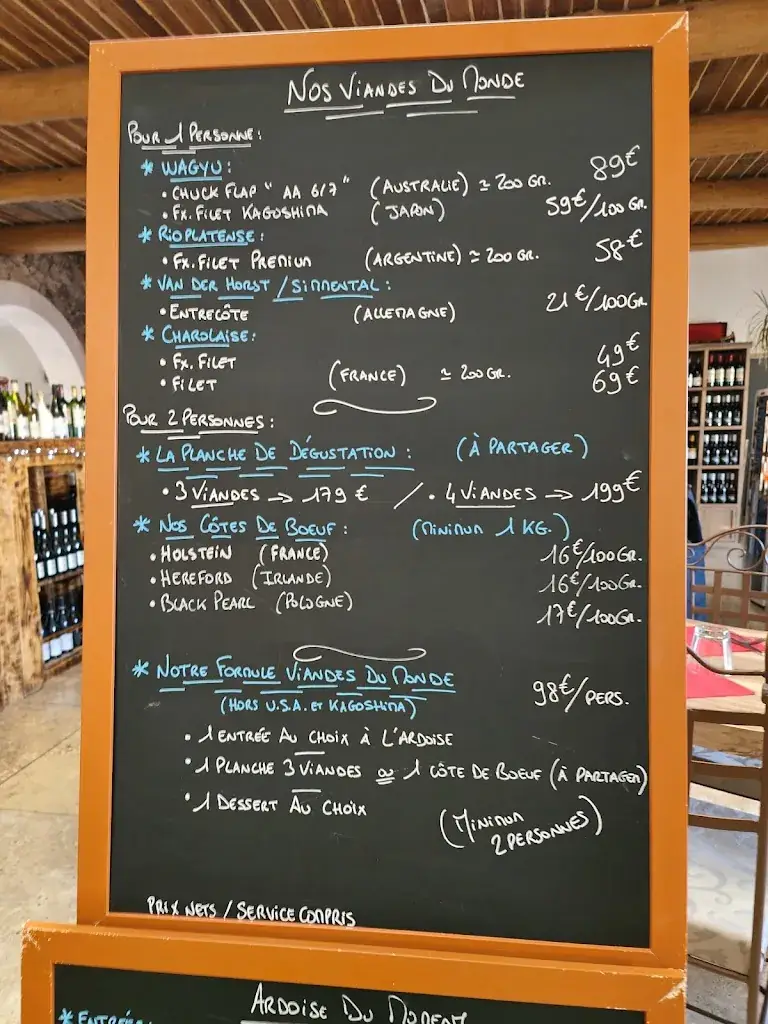 NOS VIANDES DU MONDE
POUR 1 PERSONNE:
* WAGYU:
• CHUCK FLAP "AA 6/7" (AUSTRALIE) ≃ 200 GR. 89€
• FX. FILET KAGOSHIMA (JAPON) 59€/100 GR.
* RIOPLATENSE:
• FX. FILET PREMIUM (ARGENTINE) ≃ 200 GR. 58€
* VAN DER HORST / SIMMENTAL:
• ENTRECÔTE (ALLEMAGNE) 21€/100GR
* CHAROLAISE:
• FX. FILET 49€
• FILET (FRANCE) ≃ 200 GR. 69€
POUR 2 PERSONNES:
* LA PLANCHE DE DÉGUSTATION: (À PARTAGER)
• 3 VIANDES → 179€ / • 4 VIANDES → 199€
* NOS CÔTES DE BOEUF: (MINIMUM 1 KG.)
• HOLSTEIN (FRANCE) 16€/100GR.
• HEREFORD (IRLANDE) 16€/100GR.
• BLACK PEARL (POLOGNE) 17€/100GR.
* NOTRE FORMULE VIANDES DU MONDE 98€/PERS.
(HORS U.S.A. ET KAGOSHIMA)
• 1 ENTRÉE AU CHOIX À L'ARDOISE
• 1 PLANCHE 3 VIANDES OU 1 CÔTE DE BOEUF (À PARTAGER)
• 1 DESSERT AU CHOIX
(MINIMUM
2 PERSONNES)
PRIX NETS / SERVICE COMPRIS
ARDOISE DU MOMENT
* ENTRÉES: